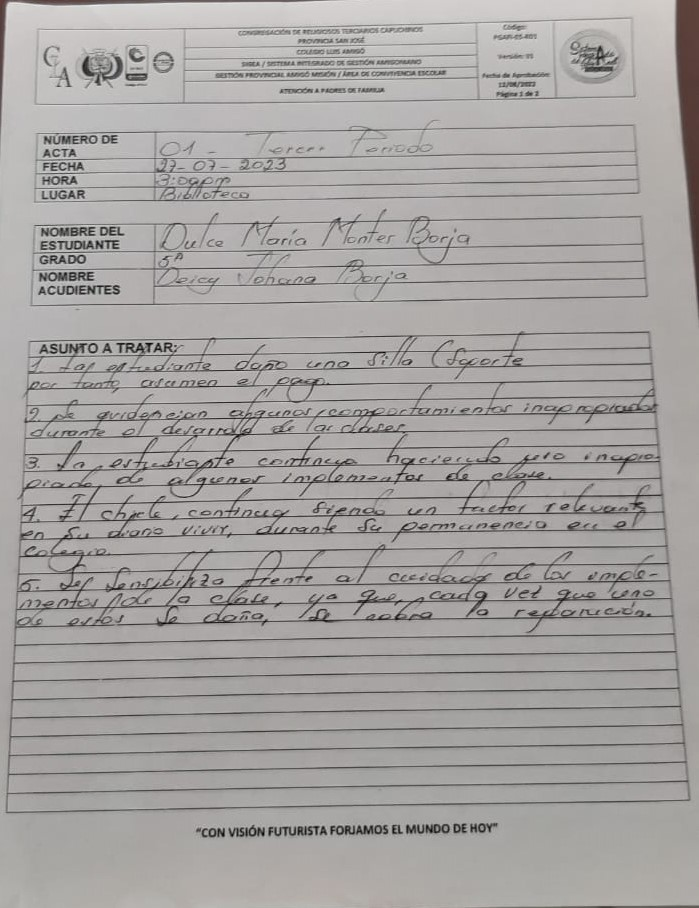 CONGREGACIÓN DE RELIGIOSOS TERCIARIOS CAPUCHINOS
PROVINCIA SAN JOSÉ
COLEGIO LUIS AMIGÓ
SIGEA / SISTEMA INTEGRADO DE GESTIÓN AMIGONIANO
GESTIÓN PROVINCIAL AMIGÓ MISIÓN / ÁREA DE CONVIVENCIA ESCOLAR
ATENCIÓN A PADRES DE FAMILIA
Código:
Versión: 01
Fecha de Aprobación:
Página 1 de 2
CLA
NÚMERO DE ACTA 01 - Tercer Periodo
FECHA 27-07-2023
HORA 3:00pm
LUGAR Biblioteca
NOMBRE DEL ESTUDIANTE Dulce María Montes Borja
GRADO 5A
NOMBRE ACUDIENTES Deicy Johana Borja
ASUNTO A TRATAR:
1. Las estudiante daño una silla (Soporte
por tanto, asumen el pago.
2. Se evidencian algunos comportamientos inapropiados
durante el desarrollo de las clases.
3. La estudiante continua haciendo uso inapro-
piado, de algunos implementos de clase.
4. El chicle, continua siendo un factor relevante
en su diario vivir, durante su permanencia en el
colegio.
5. Se sensibiliza frente al cuidado de los imple-
mentos de la clase, ya que, cada vez que uno
de estos se daña, se cobra la reparación.
"CON VISIÓN FUTURISTA FORJAMOS EL MUNDO DE HOY"